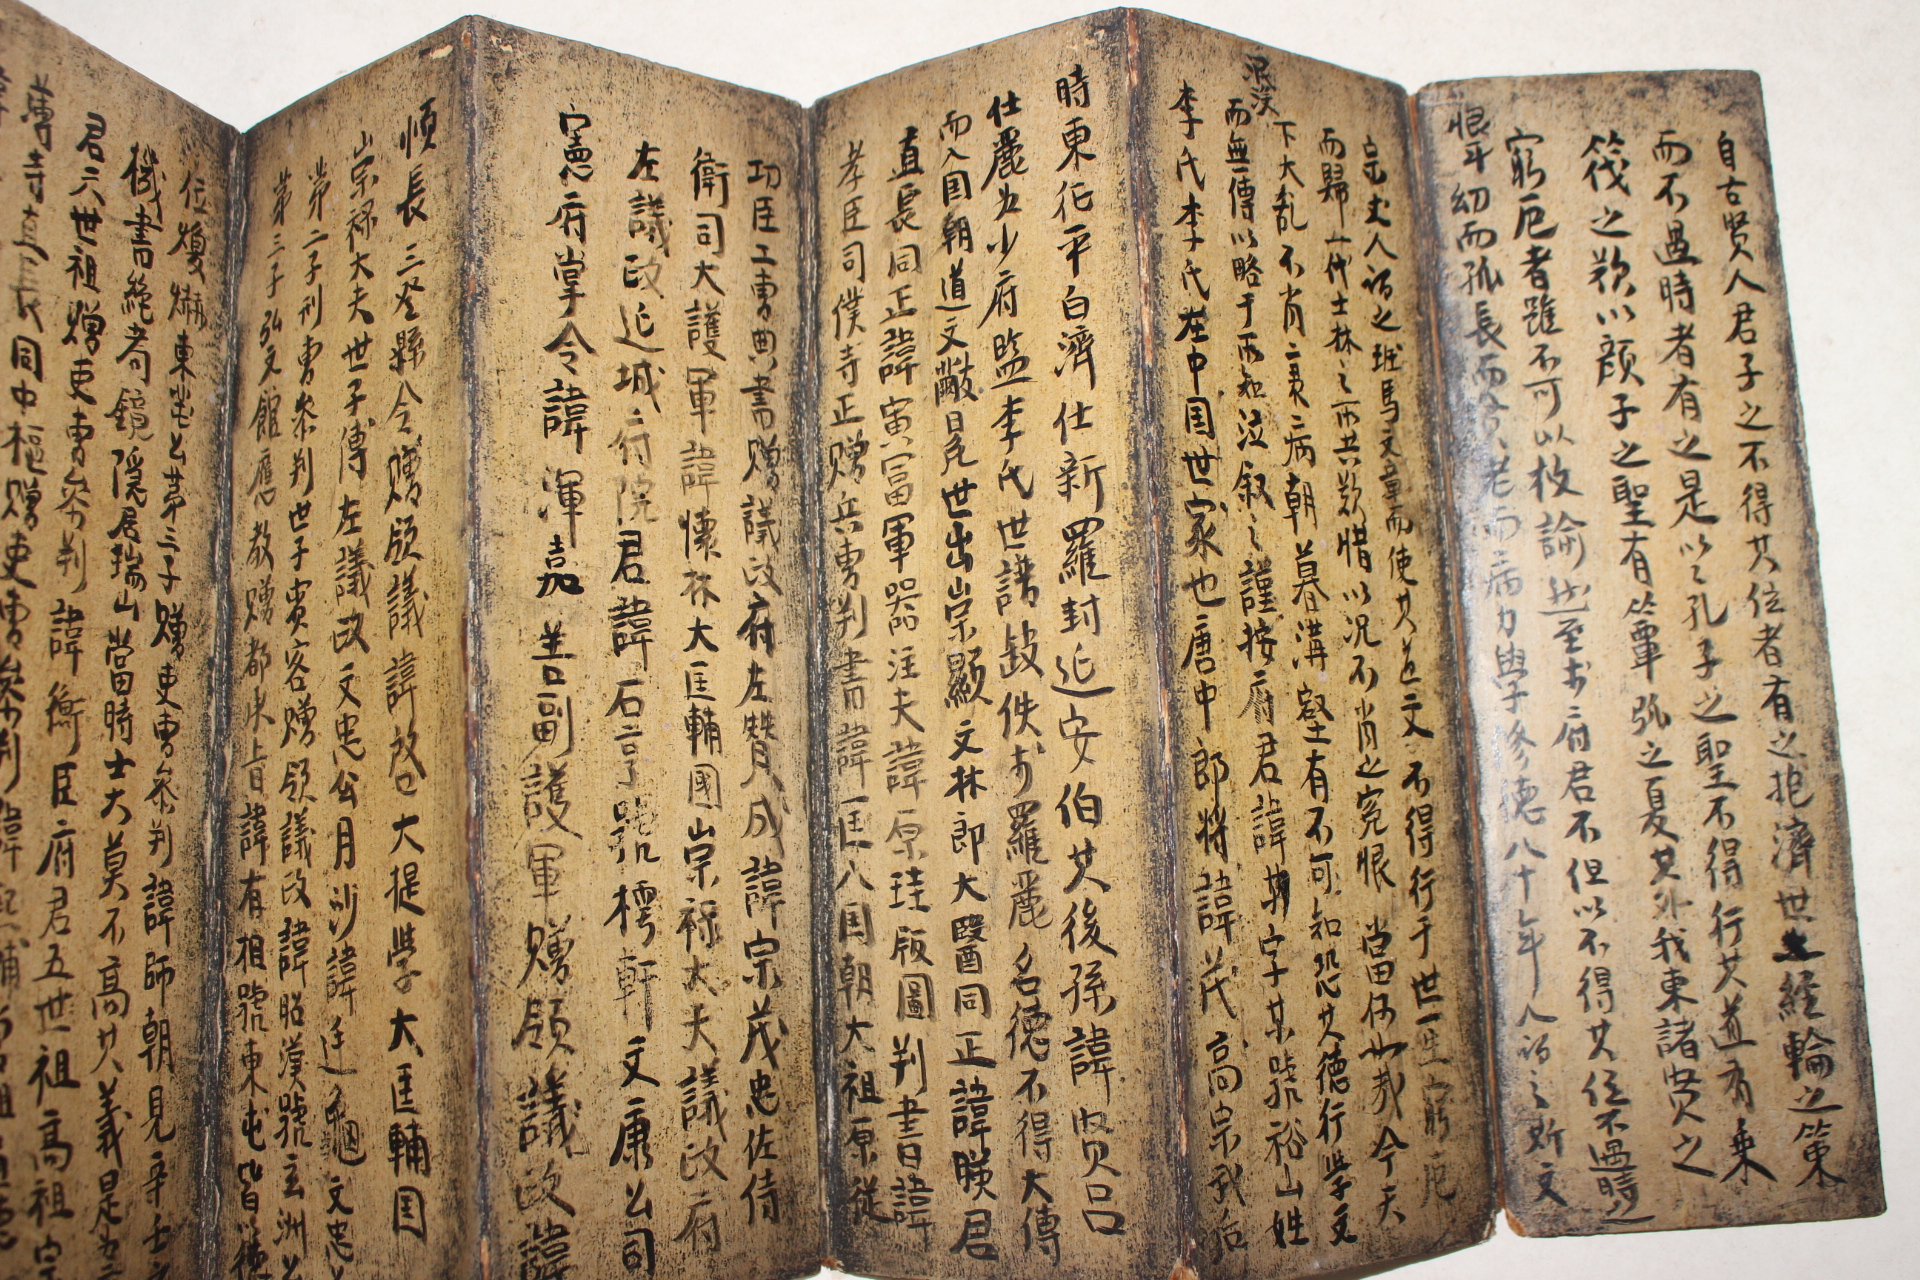 自古賢人君子之不得其位者有之抱濟世之經輪之策
而不遇時者有之是以孔子之聖不得行其道有乘
筏之歎以顔子之聖有簞瓢之憂其外我東諸賢之
窮厄者雖不可以枚論然至於府君不但以不得其位不遇時之
恨耳幼而孤長而貧老而病力學修德八十年人謂之斯文
宗丈人謂之班馬文章而使其道文不得行于世一生窮厄
而歸一代士林之所共歎惜以况不肖之寃恨當何如哉今夫
下大亂不肖二衰二病朝暮溝壑有不可知恐其德行學文
泯沒
而無傳以略于所知泣叙之謹按府君諱某字某號裕山姓
李氏本李氏在中国世家也唐中郎將諱茂高宗武后
時東征平白濟仕新羅封延安伯其後孫諱賢呂
仕麗爲少府監李氏世譜缺佚於羅麗名德不得大傳
而入国朝道文黻冕世出崇顯文林郎大醫同正諱暎君
直長同正諱寅富軍器注夫諱原珪版圖判書諱
孝臣司僕寺正贈兵曹判書諱匡入国朝大祖原從
功臣工曹典書贈議政府左贊成諱宗茂忠佐侍
衛司大護軍諱懷林大匡輔國崇祿大夫議政府
左議政延城府院君諱石亨號樗軒文康公司
憲府掌令諱渾嘉善副護軍贈領議政諱
順長三登縣令贈領議諱啓大提學大匡輔国
崇祿大夫世子傅左議政文忠公月沙諱廷龜文忠公
第二子刑曹參判世子賓客贈領議政諱昭漢號玄洲公
第三子弘文館應教贈都承旨諱有相號東屯皆以德
位煥爀東屯公第三子贈吏曹參判諱師朝見辛壬
機書絶奇鏡隱居瑞山當時士大莫不高其義是爲
君六世祖贈吏曹參判諱衡臣府君五世祖高祖
寺直長同中樞贈吏曹參判諱